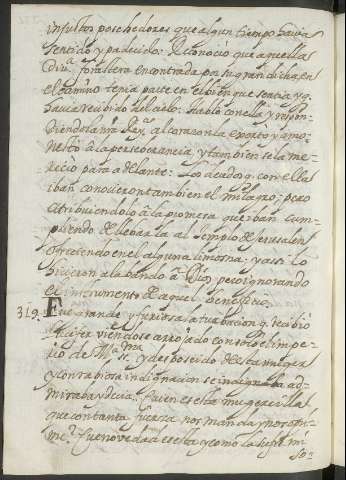 injustos posehedores que algun tiempo havia
sentido y padecido: Reconoció que aquella
Divᵃ forastera encontrada por su gran dicha, en
el camino tenia parte en el bien que sentia y q
havia recibido del cielo: Hablo con ella y respon-
diendola nrã Reyᵃ al corazon la exorto y amo-
nesto â la perseverancia, y tambien se la me-
recio para adelante: Los deudos q. con ella
iban conocieron tambien el milagro; pero
atribuiendolo â la promesa que iban cum-
pliendo de llevarla al Templo de Jerusalen
ofreciendo en el alguna limosna; y assi lo
hicieron alabando â Dios pero ignorando
el instrumento de aquel beneficio.
319. Fue grande y furiosa la turbacion q. recibió
Lucifer viendose arrojado con solo el impe-
rio de Mᵃ SSᵐᵃ y desposeido de esta muger
y con rabiosa indignacion se indignaba ad-
miraba y decia. Quien es esta mugercilla
que con tanta fuerza nos manda y nos opri-
me? Que novedad es esta y como la sufre mi
so=